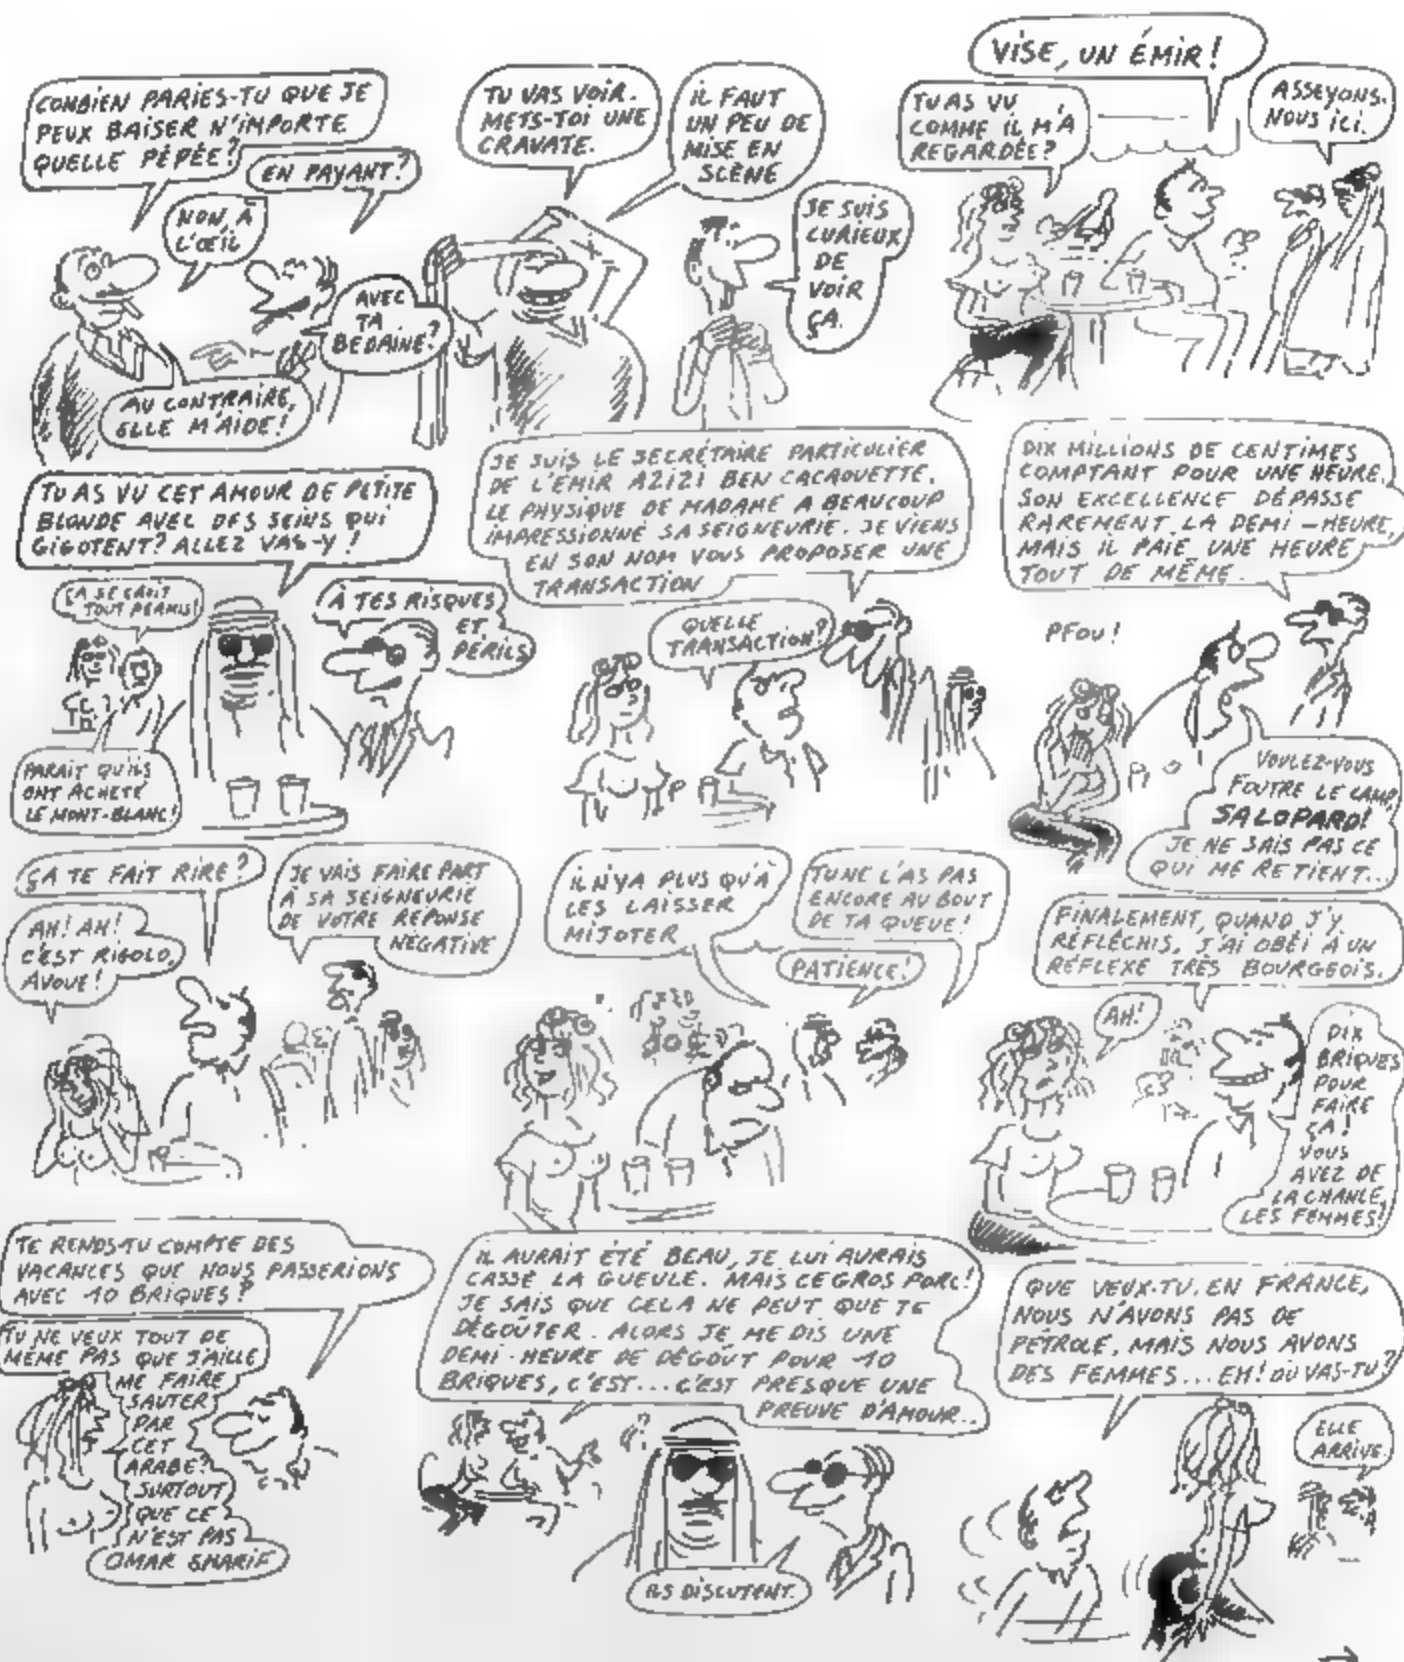 CONBIEN PARIES-TU QUE JE
PEUX BAISER N'IMPORTE
QUELLE PÉPÉE?
EN PAYANT?
NON, À
L'ŒIL
AVEC
TA
BEDAINE?
AU CONTRAIRE,
ELLE M'AIDE!
TU VAS VOIR.
METS-TOI UNE
CRAVATE.
IL FAUT
UN PEU DE
MISE EN
SCÈNE
JE SUIS
CURIEUX
DE
VOIR
ÇA.
VISE, UN ÉMIR!
TU AS VU
COMME IL M'A
REGARDÉE?
ASSEYONS-
NOUS ICI.
TU AS VU CET AMOUR DE PETITE
BLONDE AVEC DES SEINS QUI
GIGOTENT? ALLEZ VAS-Y!
ÇA SE CROIT
TOUT PERMIS!
À TES RISQUES
ET
PÉRILS
PARAIT QU'ILS
ONT ACHETÉ
LE MONT-BLANC!
JE SUIS LE SECRÉTAIRE PARTICULIER
DE L'ÉMIR AZIZI BEN CACAOUETTE.
LE PHYSIQUE DE MADAME A BEAUCOUP
IMPRESSIONNÉ SA SEIGNEURIE. JE VIENS
EN SON NOM VOUS PROPOSER UNE
TRANSACTION
QUELLE
TRANSACTION?
DIX MILLIONS DE CENTIMES
COMPTANT POUR UNE HEURE.
SON EXCELLENCE DÉPASSE
RAREMENT LA DEMI-HEURE,
MAIS IL PAIE UNE HEURE
TOUT DE MÊME.
PFOU!
VOULEZ-VOUS
FOUTRE LE CAMP,
SALOPARD!
JE NE SAIS PAS CE
QUI ME RETIENT...
ÇA TE FAIT RIRE?
AH! AH!
C'EST RIGOLO,
AVOUE!
JE VAIS FAIRE PART
À SA SEIGNEURIE
DE VOTRE RÉPONSE
NÉGATIVE
IL N'Y A PLUS QU'À
LES LAISSER
MIJOTER
TU NE L'AS PAS
ENCORE AU BOUT
DE TA QUEUE!
PATIENCE!
FINALEMENT, QUAND J'Y
RÉFLÉCHIS, J'AI OBÉI À UN
RÉFLEXE TRÈS BOURGEOIS.
AH!
DIX
BRIQUES
POUR
FAIRE
ÇA!
VOUS
AVEZ DE
LA CHANCE,
LES FEMMES!
TE RENDS-TU COMPTE DES
VACANCES QUE NOUS PASSERIONS
AVEC 10 BRIQUES?
TU NE VEUX TOUT DE
MÊME PAS QUE J'AILLE
ME FAIRE
SAUTER
PAR
CET
ARABE?
SURTOUT
QUE CE
N'EST PAS
OMAR SHARIF
IL AURAIT ÉTÉ BEAU, JE LUI AURAIS
CASSÉ LA GUEULE. MAIS CE GROS PORC!
JE SAIS QUE CELA NE PEUT QUE TE
DÉGOÛTER. ALORS JE ME DIS UNE
DEMI-HEURE DE DÉGOÛT POUR 10
BRIQUES, C'EST... C'EST PRESQUE UNE
PREUVE D'AMOUR..
ILS DISCUTENT.
QUE VEUX-TU. EN FRANCE,
NOUS N'AVONS PAS DE
PÉTROLE, MAIS NOUS AVONS
DES FEMMES... EH! OÙ VAS-TU?
ELLE
ARRIVE.